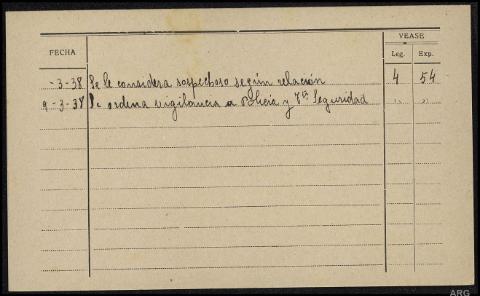 VEASE
FECHA Leg. Exp.
-3-38 Se le considera sospechoso según relación 4 54
9-3-38 Se ordena vigilancia a Policia y Seguridad " "
ARG